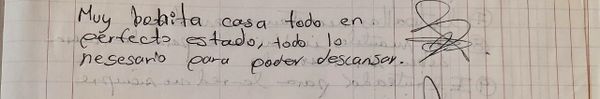 Muy bonita casa todo en
perfecto estado, todo lo
nesesario para poder descansar.